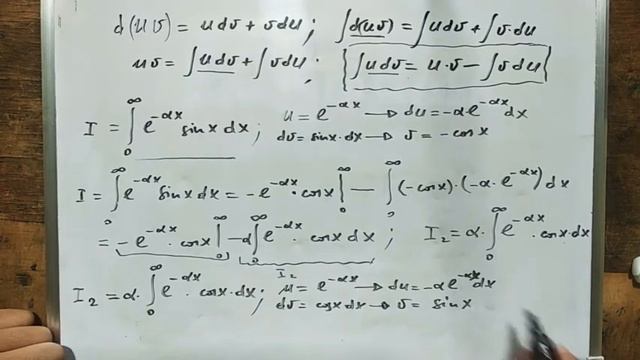 d(uv) = udv + vdu ; ∫d(uv) = ∫udv + ∫v·du
uv = ∫udv + ∫vdu ; ∫udv = u·v − ∫vdu
I = ∫₀^∞ e^{-αx} sinx dx ; u = e^{-αx} → du = -αe^{-αx}dx
dv = sinx·dx → v = -cosx
I = ∫₀^∞ e^{-αx} sinx dx = -e^{-αx}·cosx |₀^∞ − ∫₀^∞ (-cosx)·(-α·e^{-αx})dx
= -e^{-αx}·cosx |₀^∞ − α∫₀^∞ e^{-αx}·cosx dx ; I₂ = α·∫₀^∞ e^{-αx}·cosx·dx
I₂
I₂ = α·∫₀^∞ e^{-αx}·cosx·dx ; u = e^{-αx} → du = -αe^{-αx}dx
dv = cosx dx → v = sinx